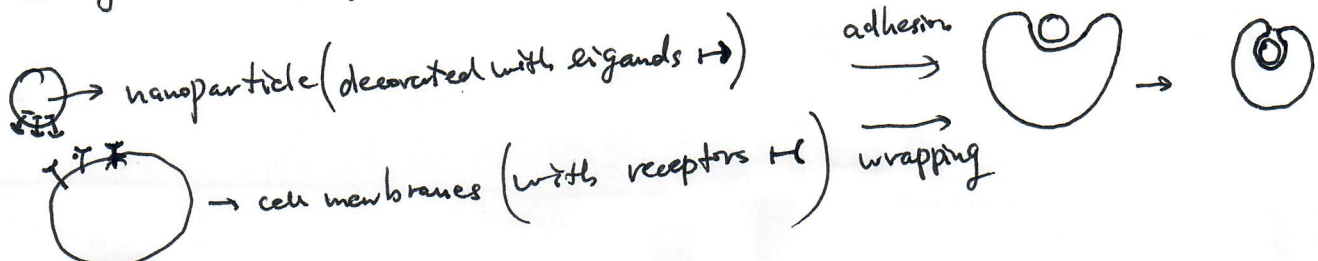 nanoparticle (decorated with ligands
adhesion
cell membranes (with receptors
wrapping